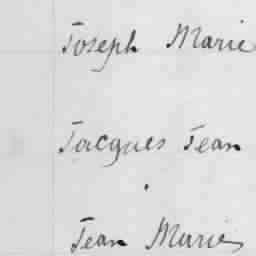 Joseph Marie
Jacques Jean
Jean Marie